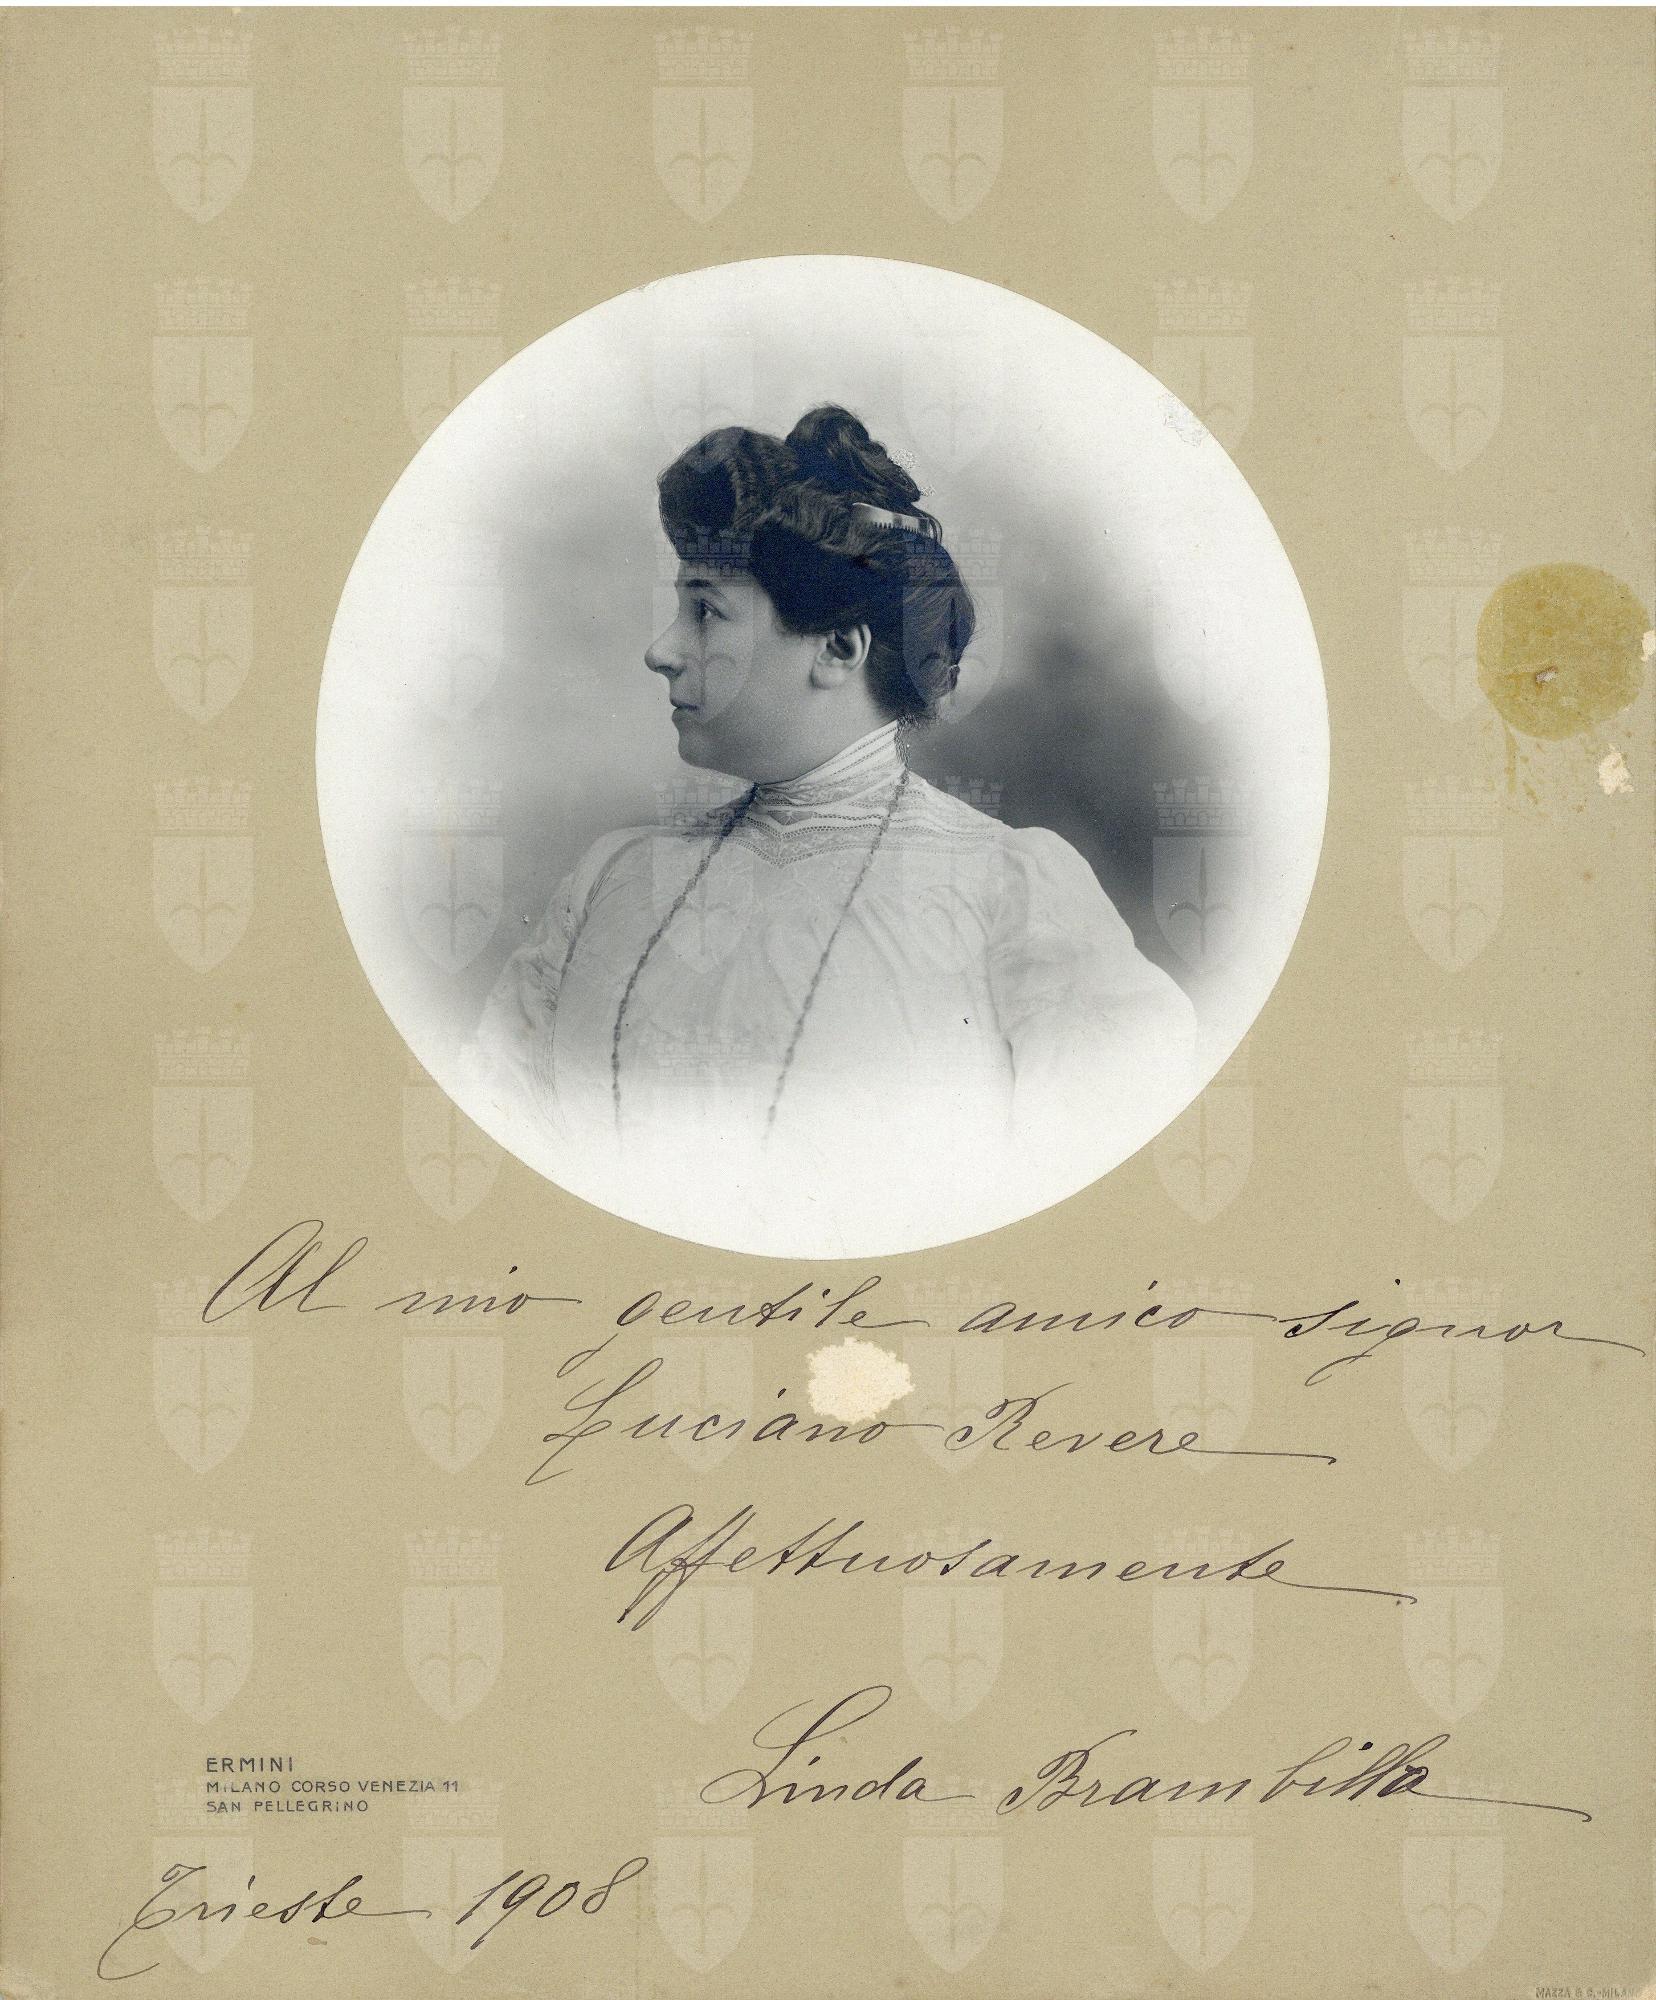 Al mio gentile amico signor
Luciano Revere
Affettuosamente
Linda Brambilla
ERMINI
MILANO CORSO VENEZIA 11
SAN PELLEGRINO
Trieste 1908
MAZZA & C.-MILANO